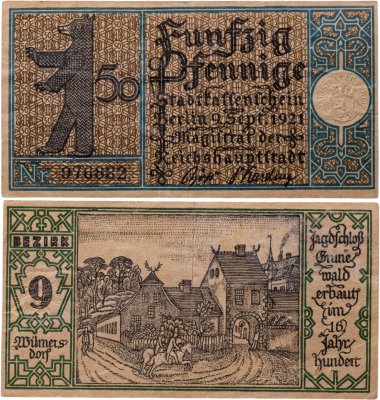 50
Fünfzig
Pfennige
Stadtkassenschein
Berlin 9. Sept. 1921
Magistrat der
Reichshauptstadt
Nr. 076882
BEZIRK
9
Wilmers-
dorf
Jagdschloß
Grune-
wald
erbaut
im
16
Jahr-
hundert